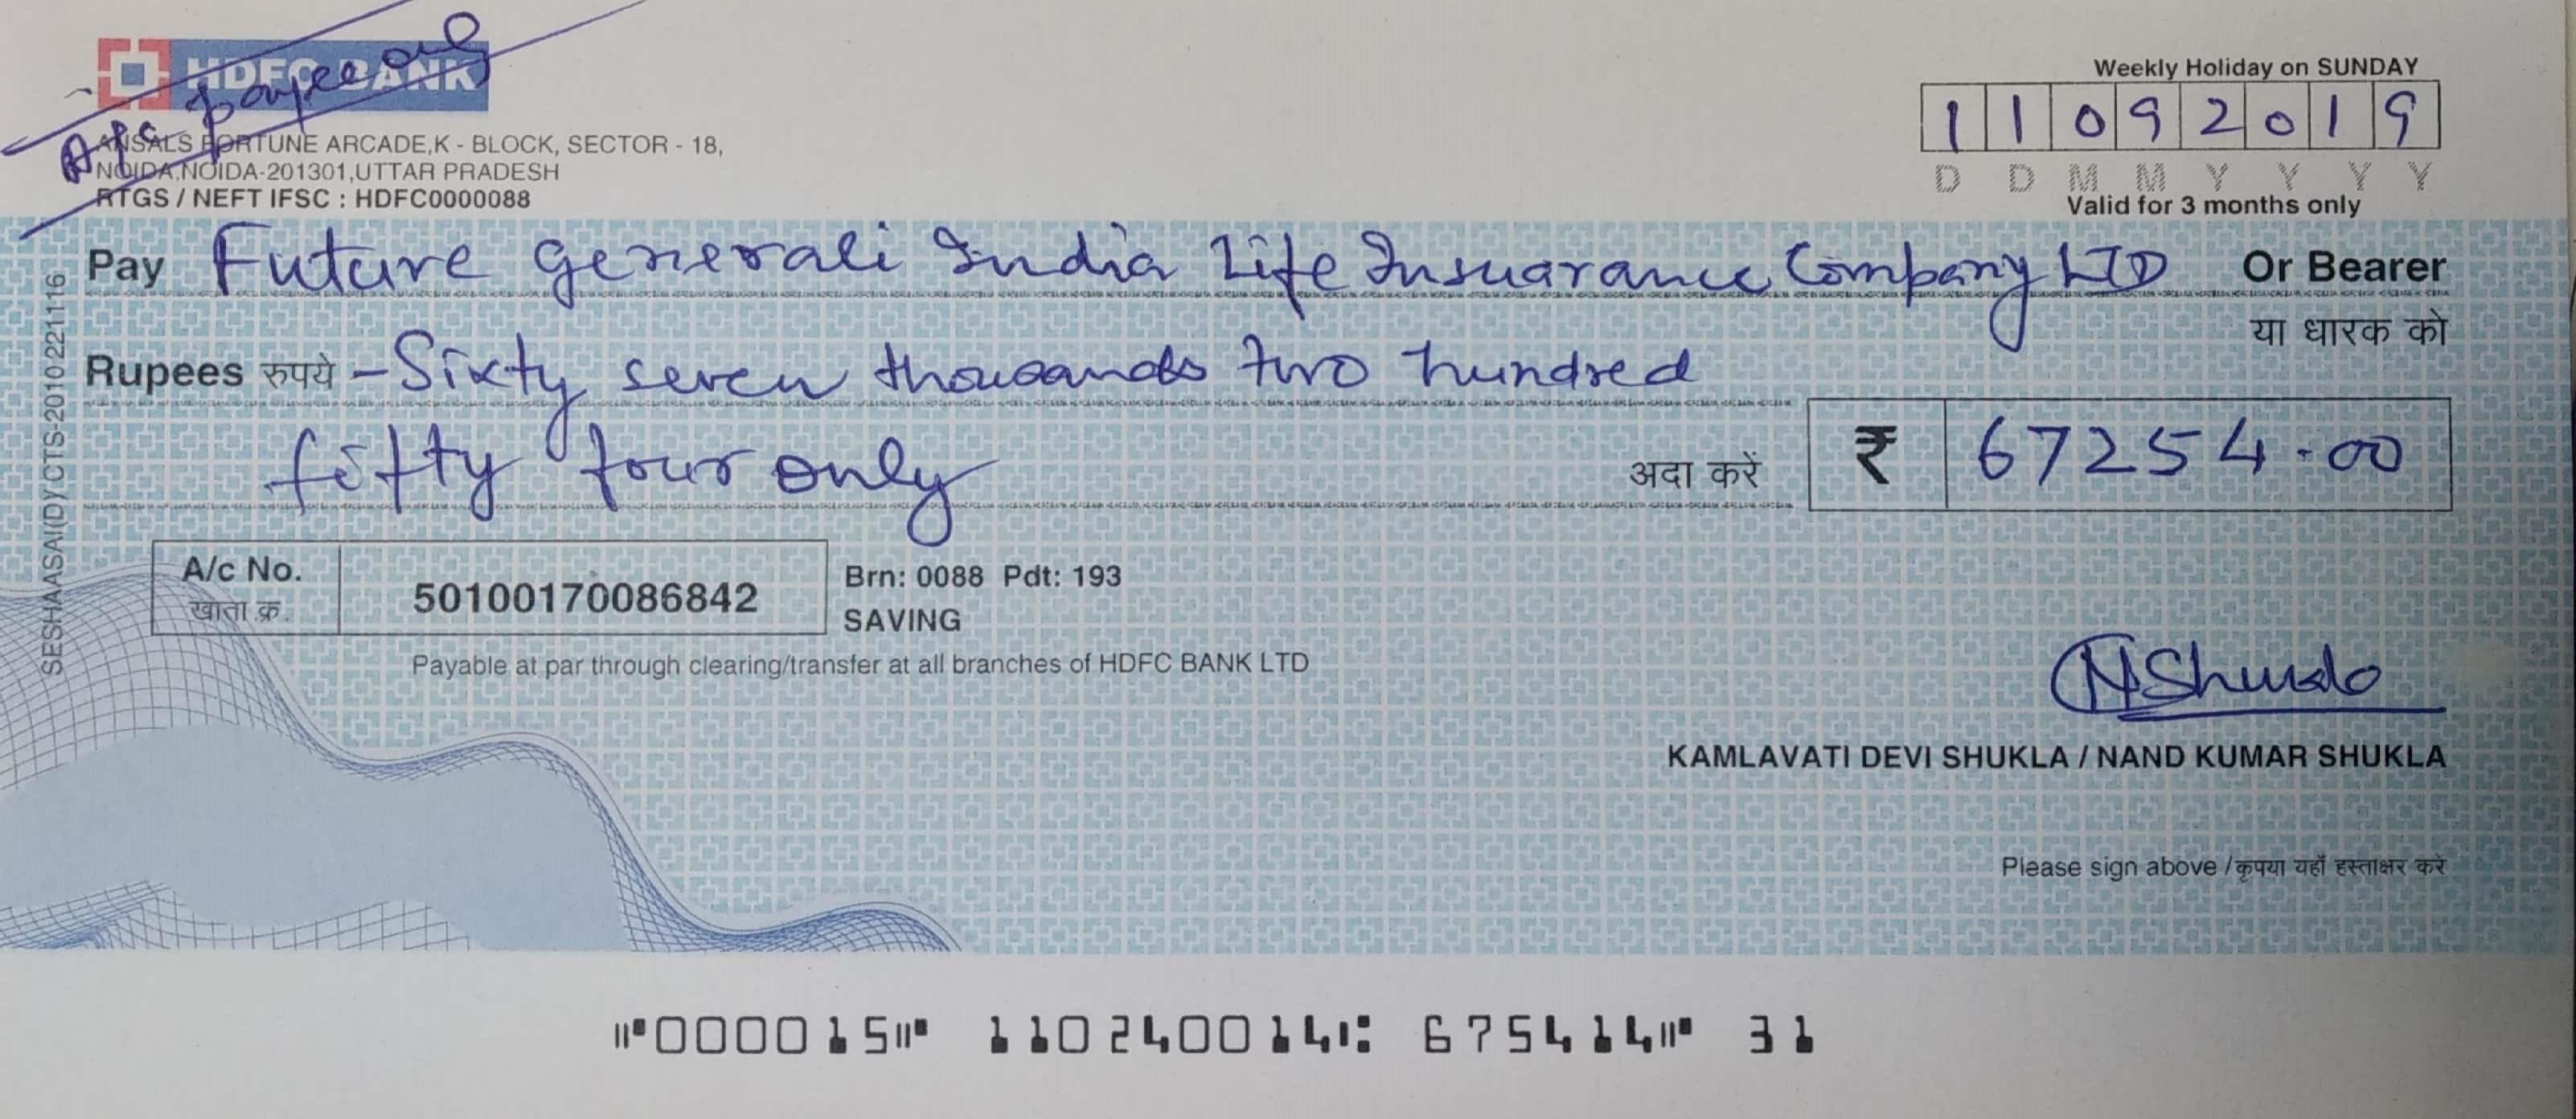 HDFC BANK
A/c payee only
ANSALS FORTUNE ARCADE,K - BLOCK, SECTOR - 18,
NOIDA,NOIDA-201301,UTTAR PRADESH
RTGS / NEFT IFSC : HDFC0000088
Weekly Holiday on SUNDAY
11092019
D D M M Y Y Y Y
Valid for 3 months only
Pay Future generali India Life Insuarance Company LTD Or Bearer
या धारक को
Rupees रुपये - Sixty seven thousands two hundred
fifty four only अदा करें ₹ 67254.00
A/c No. खाता क्र. 50100170086842
Brn: 0088 Pdt: 193
SAVING
Payable at par through clearing/transfer at all branches of HDFC BANK LTD
SESHAASAI(D) CTS-2010 221116
NShukla
KAMLAVATI DEVI SHUKLA / NAND KUMAR SHUKLA
Please sign above / कृपया यहाँ हस्ताक्षर करें
⑈000015⑈ 110240014⑆ 675414⑈ 31